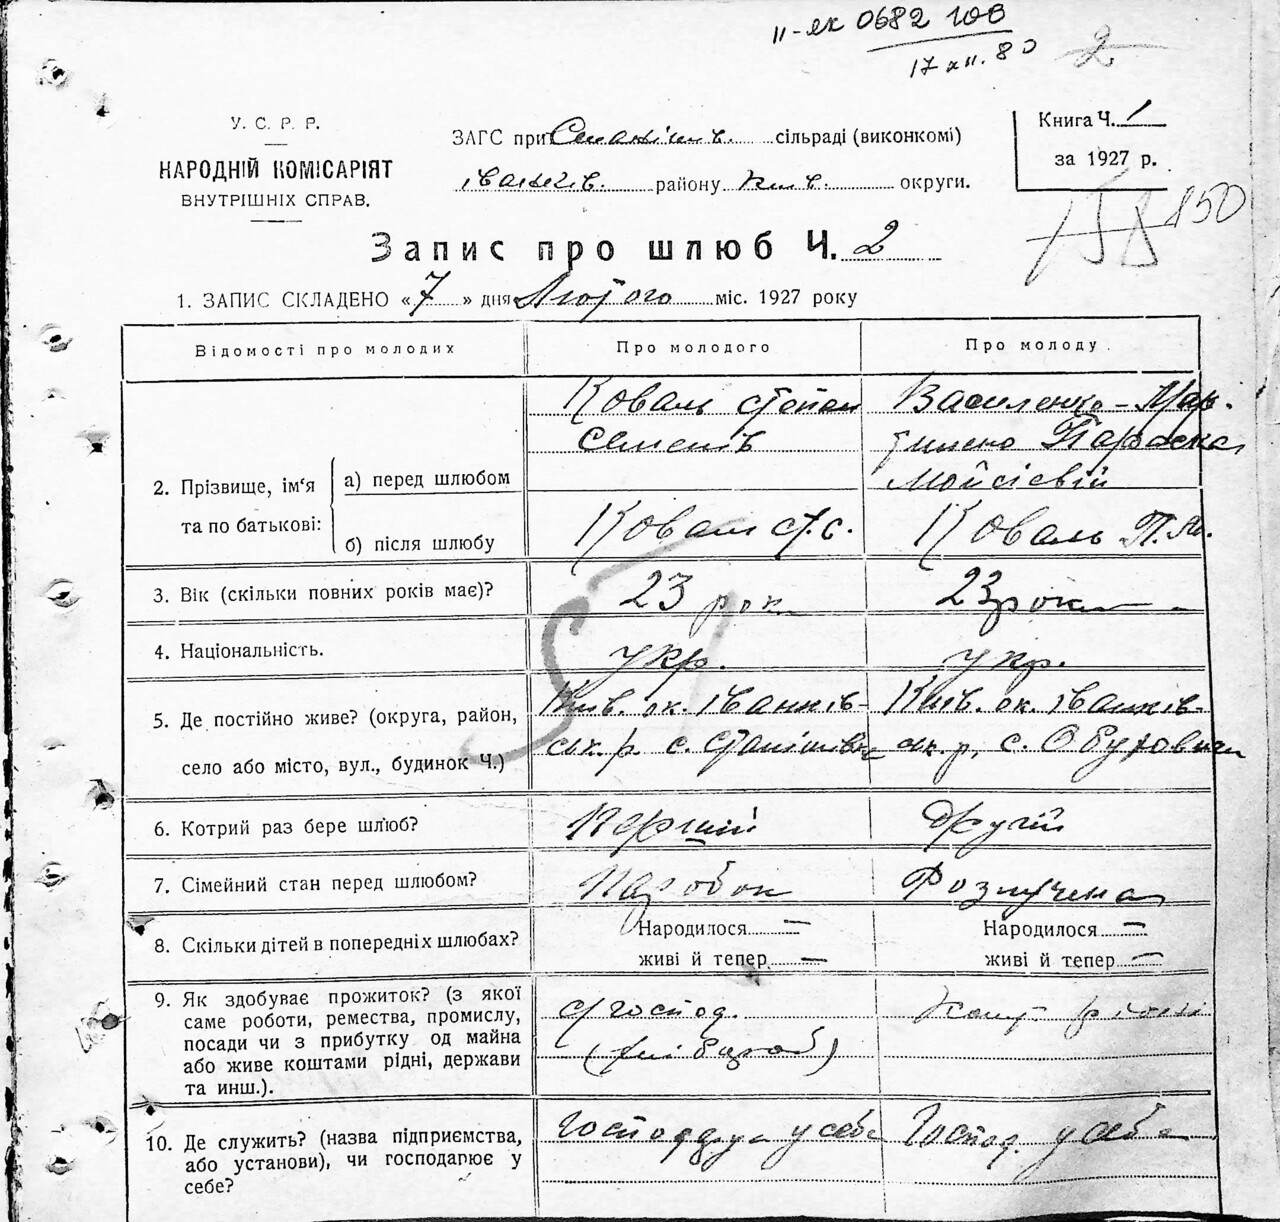 II-ЯК 0682 ЮВ
17 XII. 80
2
У. С. Р. Р.
НАРОДНІЙ КОМІСАРІЯТ
ВНУТРІШНІХ СПРАВ.
ЗАГС при Станішів. сільраді (виконкомі)
Іванків. району Київ. округи.
Книга Ч. 1
за 1927 р.
150
Запис про шлюб Ч. 2
1. ЗАПИС СКЛАДЕНО «7» дня Лютого міс. 1927 року
Відомості про молодих
Про молодого
Про молоду
2. Прізвище, ім'я та по батькові:
а) перед шлюбом
Коваль Степан
Семенів
Василенко-Мар.
тиненко Параска
Мойсієвій
б) після шлюбу
Коваль Ст. С.
Коваль П. М.
3. Вік (скільки повних років має)?
23 рок
23 роки
4. Національність.
укр.
укр.
5. Де постійно живе? (округа, район,
село або місто, вул., будинок Ч.)
Київ. ок. Іванків-
ськ. р. с. Станішівка
Київ. ок. Іванків-
ськ. р. с. Обуховичи
6. Котрий раз бере шлюб?
Перший
Другій
7. Сімейний стан перед шлюбом?
Парубок
Розлучена
8. Скільки дітей в попередніх шлюбах?
Народилося —
живі й тепер —
Народилося —
живі й тепер —
9. Як здобуває прожиток? (з якої
саме роботи, ремества, промислу,
посади чи з прибутку од майна
або живе коштами рідні, держави
та инш.).
с/господ.
(хлібороб)
Кошт. рідні
10. Де служить? (назва підприємства,
або установи), чи господарює у
себе?
Господарує у себе
Господ. у себе